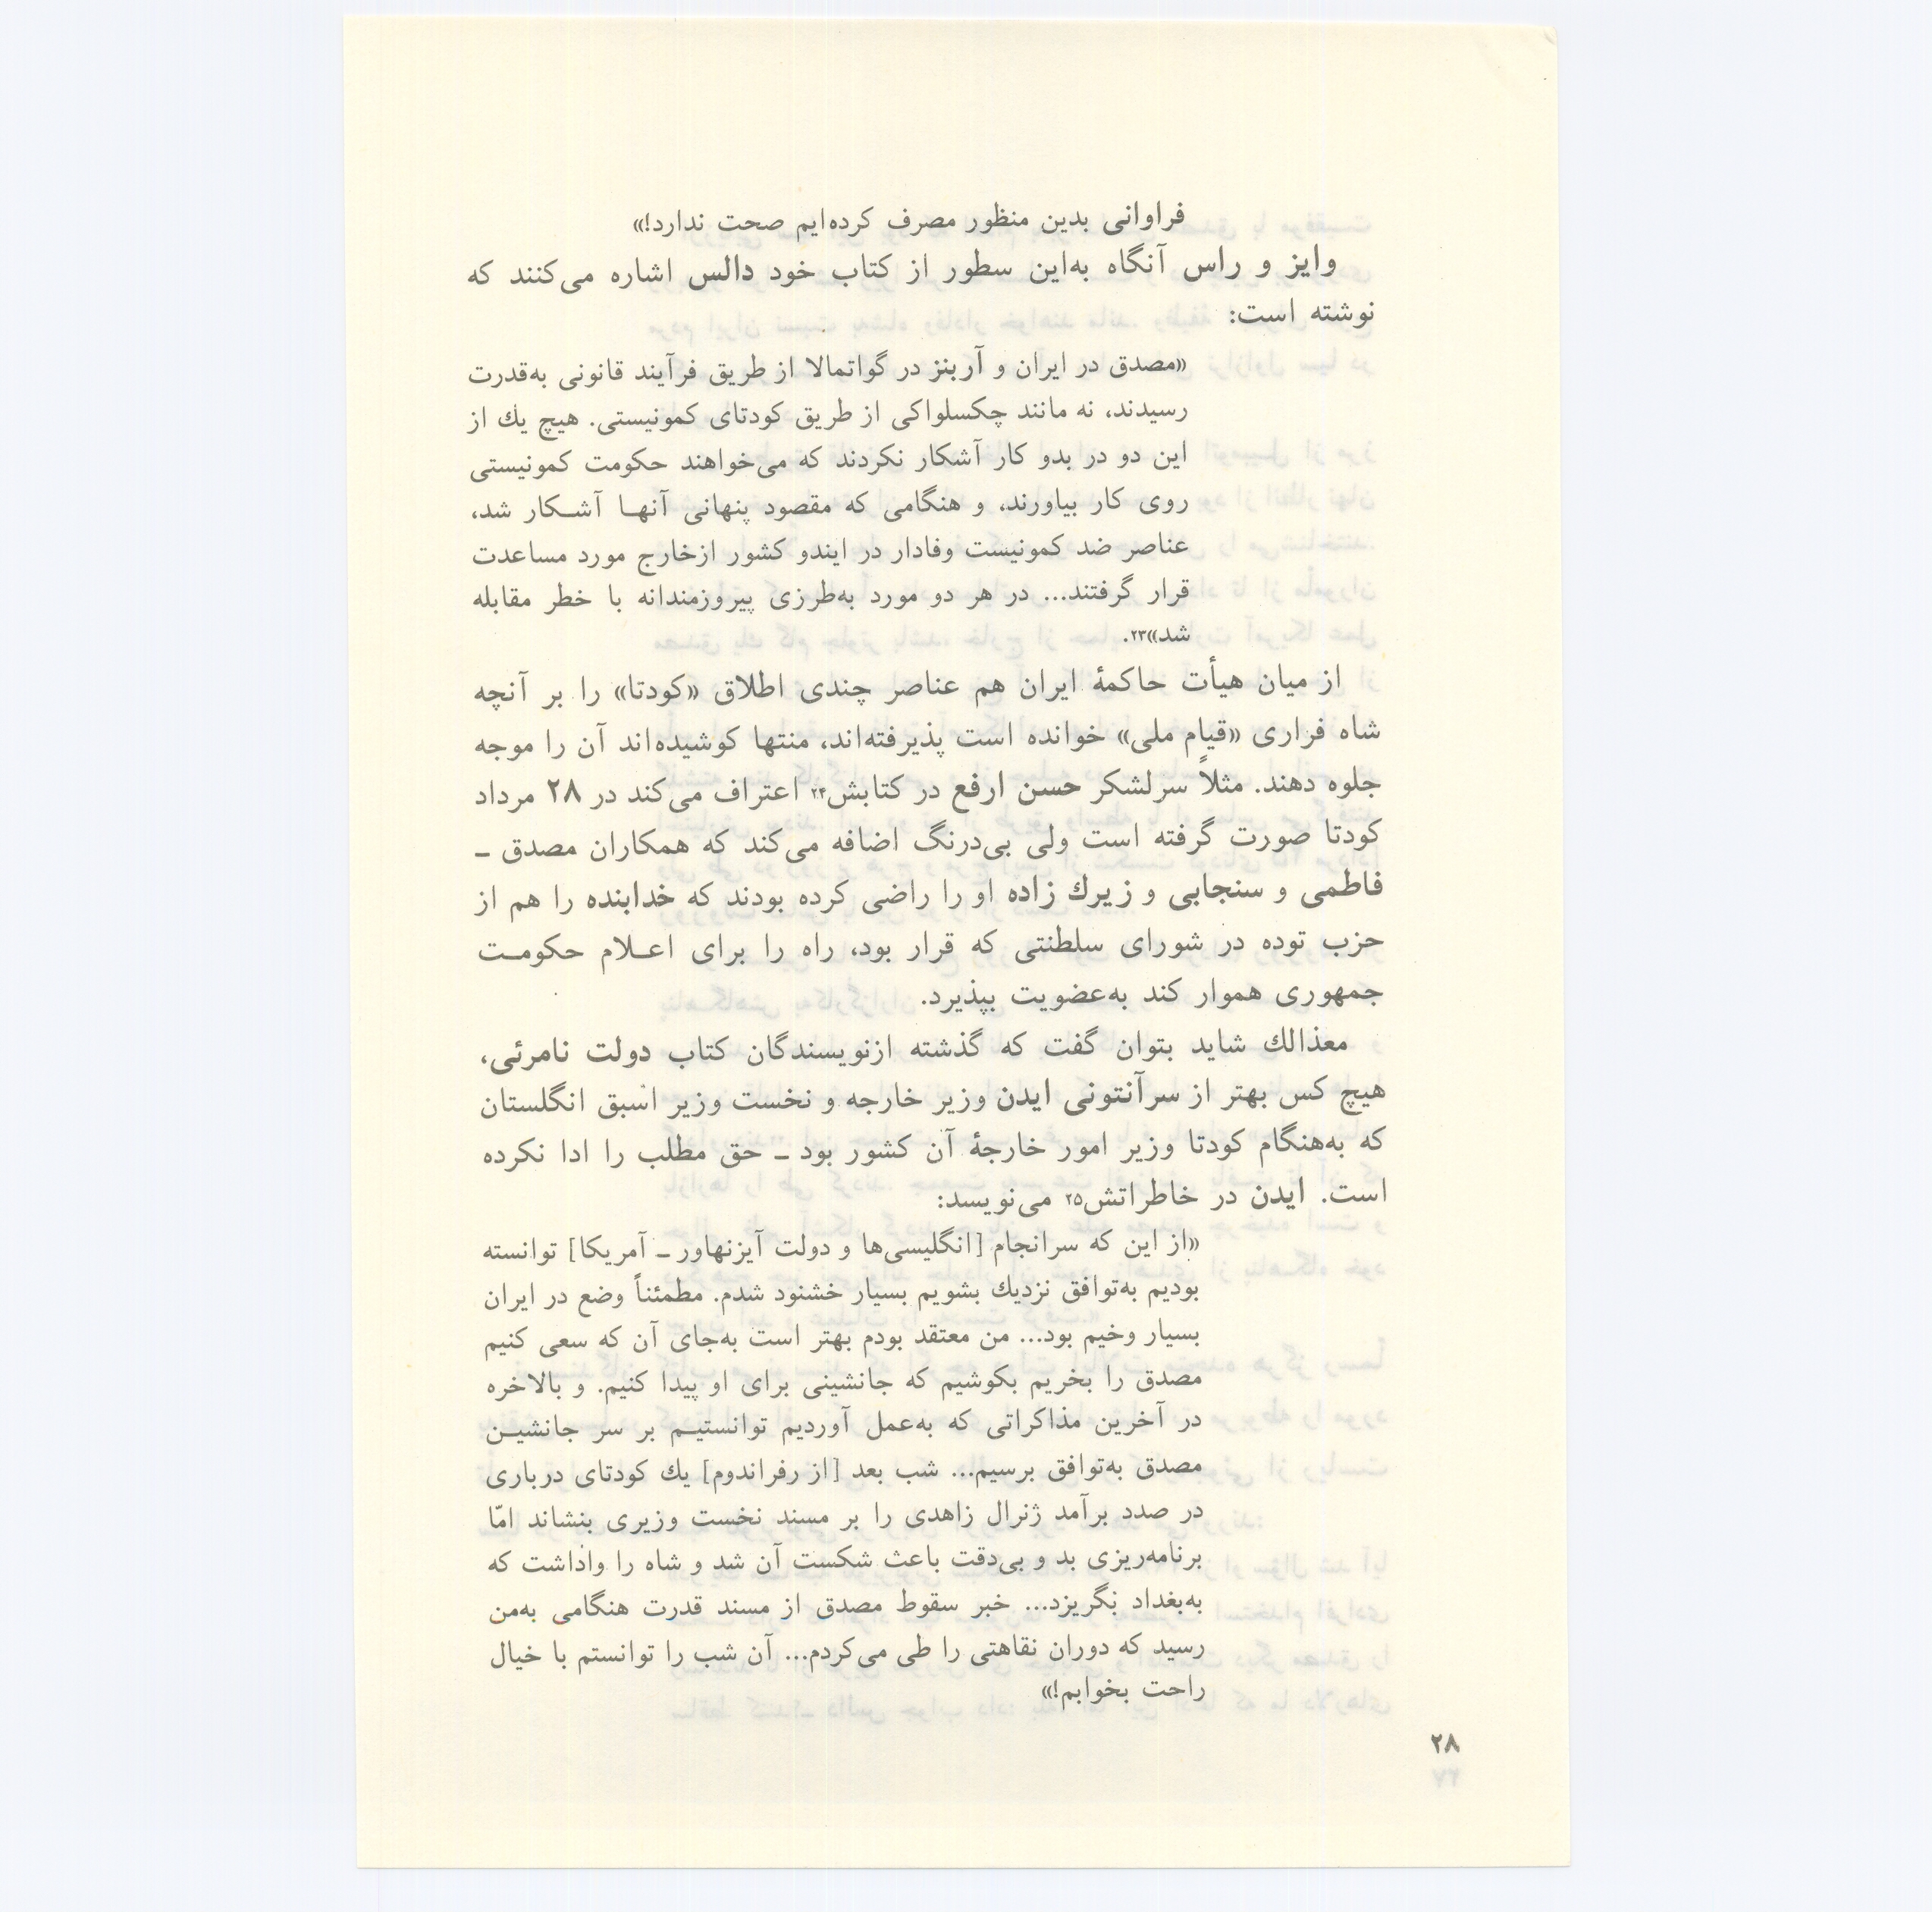 فراوانی بدین منظور مصرف کرده‌ایم صحت ندارد!»
وایز و راس آنگاه به‌این سطور از کتاب خود دالس اشاره می‌کنند که
نوشته است:
«مصدق در ایران و آربنز در گواتمالا از طریق فرآیند قانونی به‌قدرت
رسیدند، نه مانند چکسلواکی از طریق کودتای کمونیستی. هیچ یك از
این دو در بدو کار آشکار نکردند که می‌خواهند حکومت کمونیستی
روی کار بیاورند، و هنگامی که مقصود پنهانی آنها آشکار شد،
عناصر ضد کمونیست وفادار در ایندو کشور ازخارج مورد مساعدت
قرار گرفتند... در هر دو مورد به‌طرزی پیروزمندانه با خطر مقابله
شد»۲۳.
از میان هیأت حاکمهٔ ایران هم عناصر چندی اطلاق «کودتا» را بر آنچه
شاه فراری «قیام ملی» خوانده است پذیرفته‌اند، منتها کوشیده‌اند آن را موجه
جلوه دهند. مثلاً سرلشکر حسن ارفع در کتابش۲۴ اعتراف می‌کند در ۲۸ مرداد
کودتا صورت گرفته است ولی بی‌درنگ اضافه می‌کند که همکاران مصدق ـ
فاطمی و سنجابی و زیرك زاده او را راضی کرده بودند که خدابنده را هم از
حزب توده در شورای سلطنتی که قرار بود، راه را برای اعلام حکومت
جمهوری هموار کند به‌عضویت بپذیرد.
معذالك شاید بتوان گفت که گذشته ازنویسندگان کتاب دولت نامرئی،
هیچ کس بهتر از سرآنتونی ایدن وزیر خارجه و نخست وزیر اسبق انگلستان
که به‌هنگام کودتا وزیر امور خارجهٔ آن کشور بود ـ حق مطلب را ادا نکرده
است. ایدن در خاطراتش۲۵ می‌نویسد:
«از این که سرانجام [انگلیسی‌ها و دولت آیزنهاور ـ آمریکا] توانسته
بودیم به‌توافق نزدیك بشویم بسیار خشنود شدم. مطمئناً وضع در ایران
بسیار وخیم بود... من معتقد بودم بهتر است به‌جای آن که سعی کنیم
مصدق را بخریم بکوشیم که جانشینی برای او پیدا کنیم. و بالاخره
در آخرین مذاکراتی که به‌عمل آوردیم توانستیم بر سر جانشین
مصدق به‌توافق برسیم... شب بعد [از رفراندوم] یك کودتای درباری
در صدد برآمد ژنرال زاهدی را بر مسند نخست وزیری بنشاند امّا
برنامه‌ریزی بد و بی‌دقت باعث شکست آن شد و شاه را واداشت که
به‌بغداد بگریزد... خبر سقوط مصدق از مسند قدرت هنگامی به‌من
رسید که دوران نقاهتی را طی می‌کردم... آن شب را توانستم با خیال
راحت بخوابم!»
۲۸